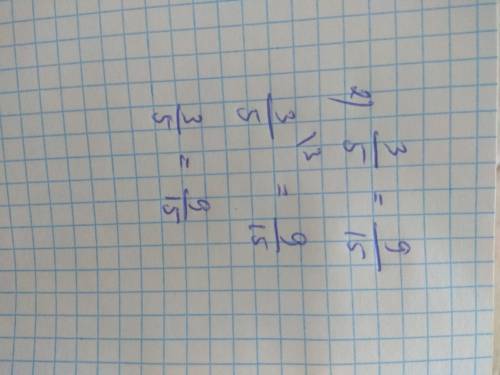 2) 3/5 = 9/15
3\3/5 = 9/15
3/5 = 9/15